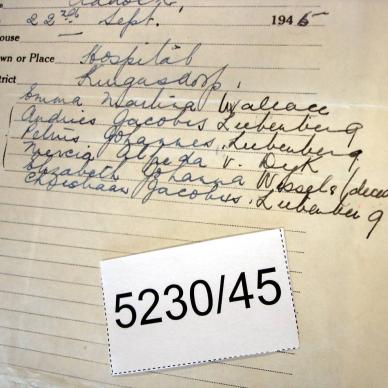 22nd Sept. 1945
ouse
own or Place Hospital
trict Krugersdorp,
Emma Martha Wallace
Andries Jacobus Liebenberg
Petrus Johannes Liebenberg
Mercia Alfreda v. Dyk
Elizabeth Johanna Wessels (dece
Christiaan Jacobus Liebenberg
5230/45